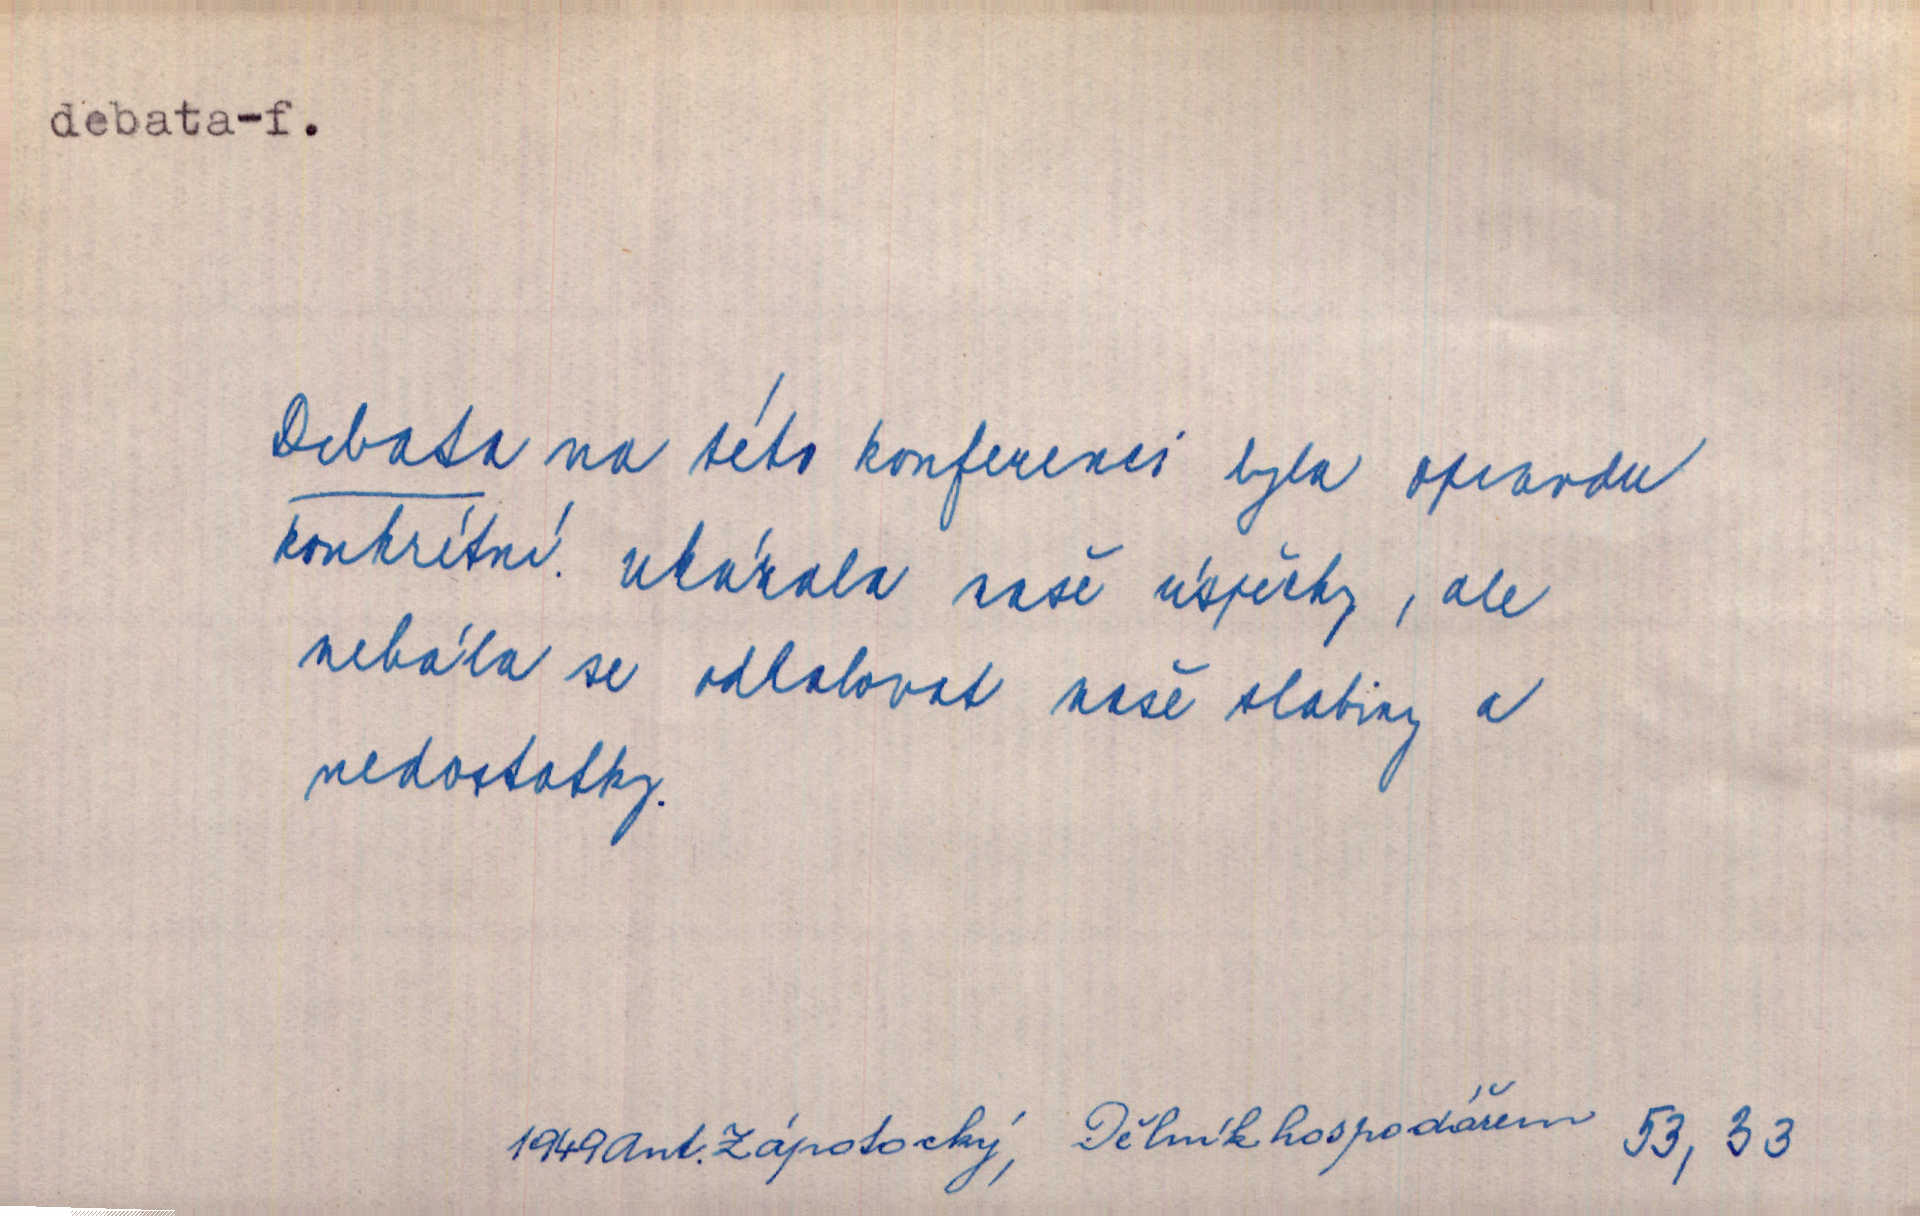 debata-f.
Debata na této konferenci byla opravdu
konkrétní. Ukázala naše úspěchy, ale
nebála se odhalovat naše slabiny a
nedostatky.
1949 Ant. Zápotocký, Dělník hospodářem 53, 33